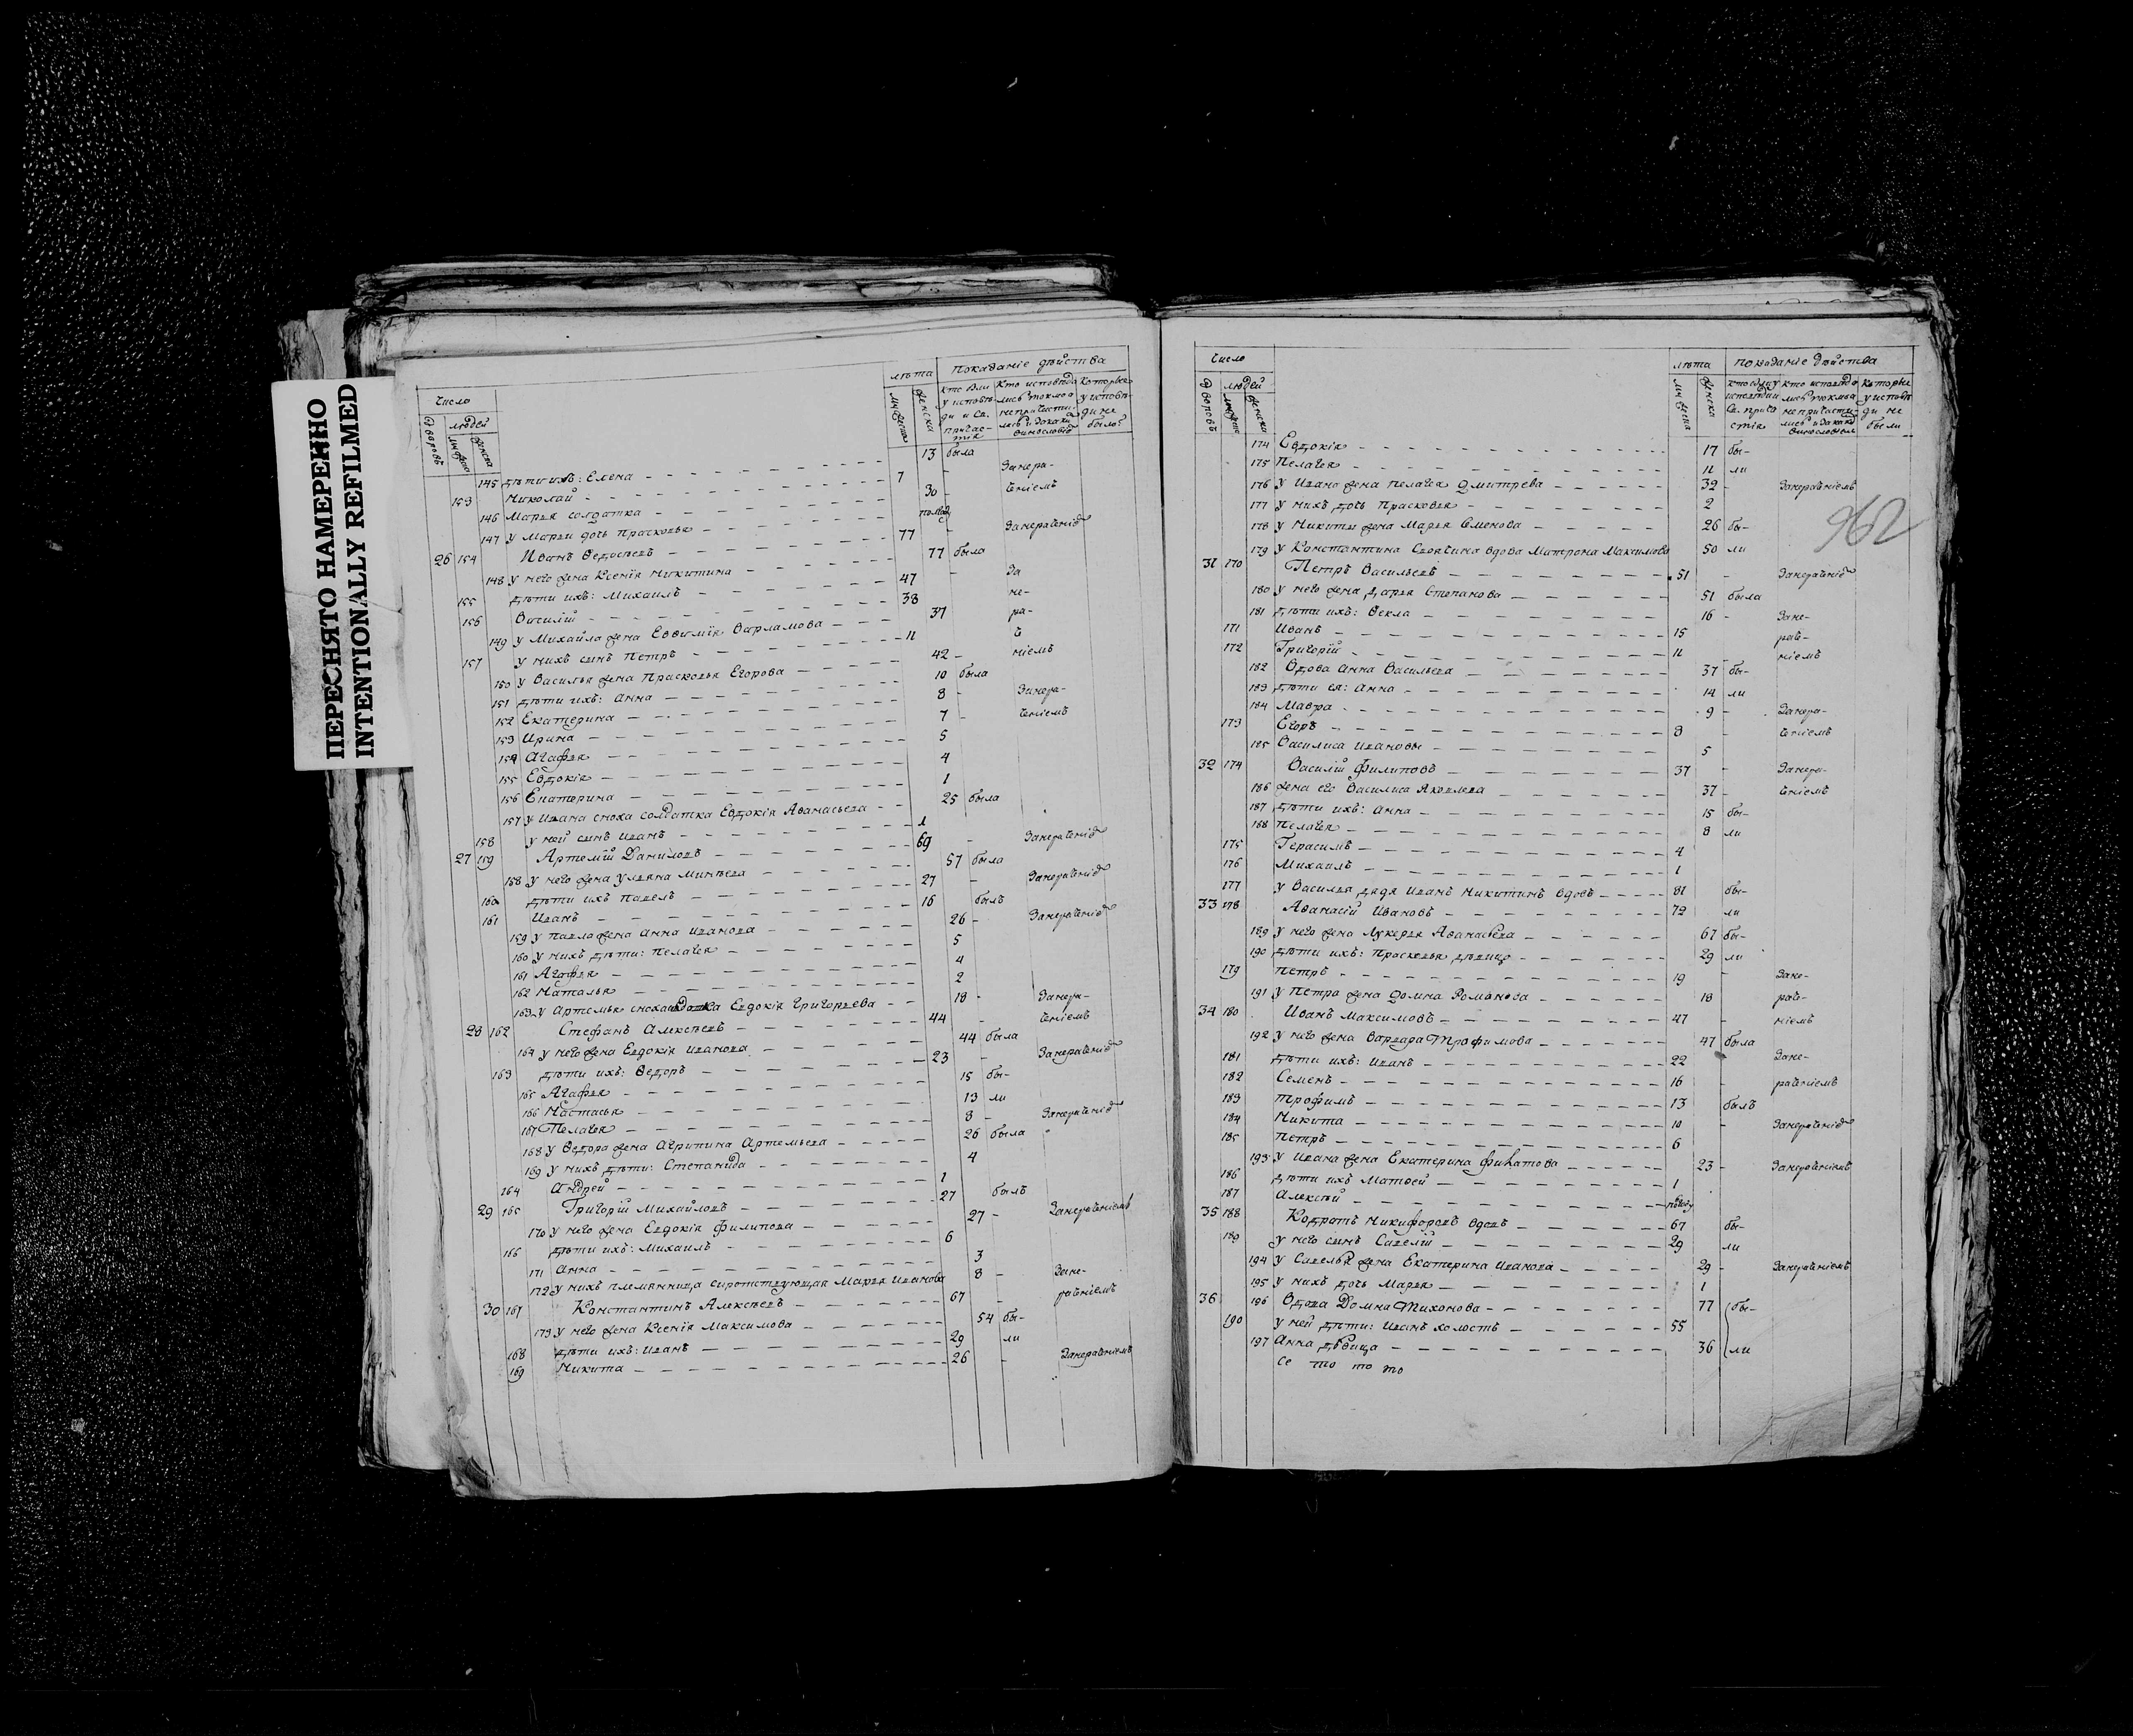 ПЕРЕСНЯТО НАМЕРЕННО
INTENTIONALLY REFILMED
Число
лѣта
показаніе дѣйства
дворовъ
людей
мужеска
женска
13 была
145 дѣти ихъ: Елена
153 Николай 7 - занера-
146 Марья солдатка 30 - ченіемъ
147 у Марьи дочь Прасковья
26 154 Иванъ Федосеевъ 77 - занераченіе
148 у него жена Ксенія Никитина 77 была
155 дѣти ихъ: Михаилъ 47 за
156 Василій 38 не-
149 у Михайла жена Евфимія Варламова 37 ра-
157 у нихъ сынъ Петръ 11 ч
150 у Василья жена Прасковья Егорова 42 - ніемъ
151 дѣти ихъ: Анна 10 была
152 Екатерина 8 - занера-
153 Ирина 7 - ченіемъ
154 Агафья 5
155 Евдокія 4
156 Екатерина 1
157 у Ивана сноха солдатка Евдокія Афанасьева 25 была
158 у ней сынъ Иванъ 1
27 159 Артемій Даниловъ 69 - занераченіе
158 у него жена Ульяна Минѣева 57 была
160 дѣти ихъ Павелъ 27 - занераченіе
161 Иванъ 16 былъ
159 у Павла жена Анна Иванова 26 - занераченіе
160 у нихъ дѣти: Пелагея 5
161 Агафья 4
162 Наталья 2
163 у Артемья сноха Евдокія Григорьева 18 - занера-
28 162 Стефанъ Алексѣевъ 44 - ченіемъ
164 у него жена Евдокія Иванова 44 была
163 дѣти ихъ: Федоръ 23 - занераченіе
165 Агафья 15 бы-
166 Настасья 13 ли
167 Пелагея 8 - занераченіе
168 у Федора жена Агрипина Артемьева 26 была
169 у нихъ дѣти: Степанида 4
164 Андрей 1
29 165 Григорій Михайловъ 27 былъ
170 у него жена Евдокія Филипова 27 - занераченіемъ
166 дѣти ихъ: Михаилъ 6
171 Анна 3
172 у нихъ племянница сиротствующая Марья Иванова 8 - зане-
30 167 Константинъ Алексѣевъ 67 - раченіемъ
173 у него жена Ксенія Максимова 54 бы-
168 дѣти ихъ: Иванъ 29 ли
169 Никита 26 - занераченіемъ
Число
лѣта
показаніе дѣйства
дворовъ
людей
мужеска
женска
174 Евдокія 17 бы-
175 Пелагея 11 ли
176 у Ивана жена Пелагея Дмитрева 32 - занераченіемъ
177 у нихъ дочь Прасковья 2
178 у Никиты жена Марья Семенова 26 бы-
179 у Константина своячина вдова Матрона Максимова 50 ли
962
31 170 Петръ Васильевъ 51 - занераченіе
180 у него жена Дарья Степанова 51 была
181 дѣти ихъ: Фекла 16 - зане-
171 Иванъ 15 рач-
172 Григорій 11 ніемъ
182 Вдова Анна Васильева 37 бы-
183 дѣти ея: Анна 14 ли
184 Мавра 9 - занера-
173 Егоръ 8 - ченіемъ
185 Василиса Ивановы 5
32 174 Василій Филиповъ 37 - занера-
186 жена его Василиса Яковлева 37 - ченіемъ
187 дѣти ихъ: Анна 15 бы-
188 Пелагея 8 ли
175 Герасимъ 4
176 Михаилъ 1
177 у Василья дядя Иванъ Никитинъ вдовъ 81 бы-
33 178 Афанасій Ивановъ 72 ли
189 у него жена Лукерья Афанасьева 67 бы-
190 дѣти ихъ: Прасковья дѣвица 29 ли
179 Петръ 19 зане-
191 у Петра жена Домна Романова 18 рач-
34 180 Иванъ Максимовъ 47 - ніемъ
192 у него жена Варвара Трофимова 47 была
181 дѣти ихъ: Иванъ 22 зане-
182 Семенъ 16 - раченіемъ
183 Трофимъ 13 былъ
184 Никита 10 - занераченіе
185 Петръ 6
193 у Ивана жена Екатерина Филатова 23 - занераченіемъ
186 дѣти ихъ Матвей 1
187 Алексѣй
35 188 Кодратъ Никифоровъ вдовъ 67 бы-
189 у него сынъ Савелій 29 ли
194 у Савелья жена Екатерина Иванова 29 - занераченіемъ
195 у нихъ дочь Марья 1
36 196 Вдова Домна Тихонова 77 бы-
190 у ней дѣти: Иванъ холостъ 55
197 Анна дѣвица 36 ли